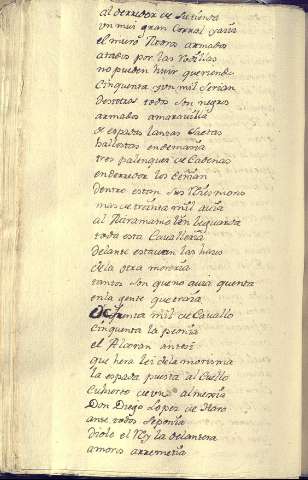 al derredor de su tienda
vn mui gran Corral fazia
el muro Moros armados
atados por las Rodillas
no pueden huir queriendo
Cinquenta y vn mil Serian
destotros todos son negros
armados a marauilla
de espadas lanzas saetas
ballestas en demasia
tres palenques de Cadenas
enderredor los Ceñian
dentro estan sus Reies moros
mas de treinta mil auia
al Miramamolin le guarda
toda esta Caualleria
delante estauan las hazes
de la otra moreria
tantos son que no auia quenta
en la gente que traia
Ochenta mil de Cavallo
Cinquenta la peonia
el Alcoran ante si
que hera lei de la morisma
la espada puesta al Cuello
Cubierto de vn almeria
Don Diego Lopez de Haro
ante todos se ponia
diole el Rey la delantera
a moros arremetia